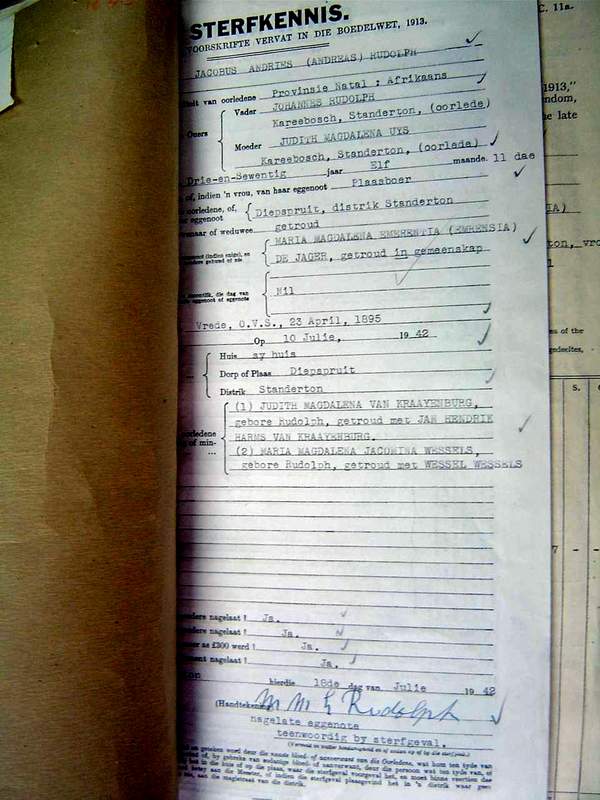 STERFKENNIS.
VOORSKRIFTE VERVAT IN DIE BOEDELWET, 1913.
JACOBUS ANDRIES (ANDREAS) RUDOLPH
van oorledene Provinsie Natal ; Afrikaans
Ouers
Vader JOHANNES RUDOLPH
Kareebosch, Standerton, (oorlede)
Moeder JUDITH MAGDALENA UYS
Kareebosch, Standerton, (oorlede)
Drie-en-Sewentig jaar Elf maande. 11 dae
of, indien 'n vrou, van haar eggenoot Plaasboer
oorledene, of, eggenoot Diepspruit, distrik Standerton
of weduwee getroud
MARIA MAGDALENA EMERENTIA (EMRENSIA)
DE JAGER, getroud in gemeenskap
Nil
Vrede, O.V.S., 23 April, 1895
Op 10 Julie, 1942
Huis sy huis
Dorp of Plaas Diepspruit
Distrik Standerton
(1) JUDITH MAGDALENA VAN KRAAYENBURG,
gebore Rudolph, getroud met JAN HENDRIK
HARMS VAN KRAAYENBURG.
(2) MARIA MAGDALENA JACOMINA WESSELS,
gebore Rudolph, getroud met WESSEL WESSELS
nagelaat ? Ja.
nagelaat ? Ja.
as £300 werd ! Ja.
nagelaat ? Ja.
hierdie 18de dag van Julie 1942
(Handtekening) M M E Rudolph
nagelate eggenote
teenwoordig by sterfgeval.
C. 11a.
1913,"
late
of the
S.